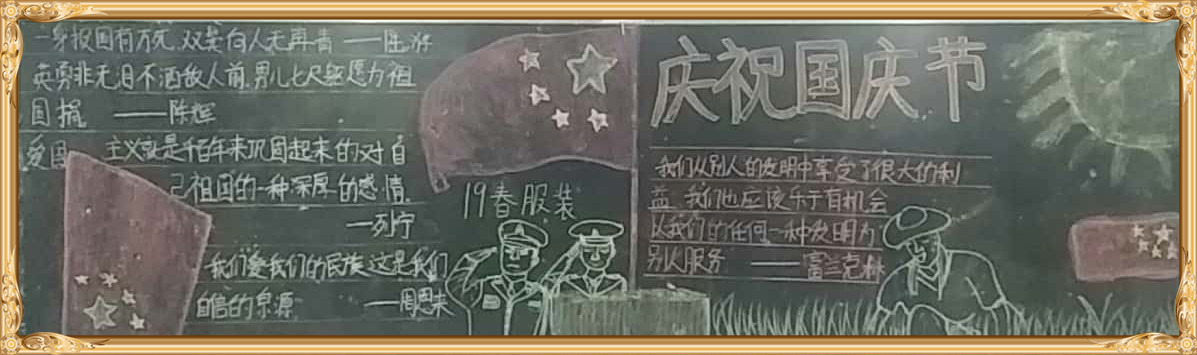 一身报国有万死,双鬓向人无再青 ——陆游
英勇非无泪不洒敌人前,男儿七尺躯愿为祖
国捐 ——陈辉
爱国主义就是千百年来巩固起来的对自
己祖国的一种深厚的感情.
——列宁
我们爱我们的民族,这是我们
自信的泉源 ——周恩来
19春服装
庆祝国庆节
我们从别人的发明中享受了很大的利
益,我们也应该乐于有机会
以我们的任何一种发明为
别人服务 ——富兰克林